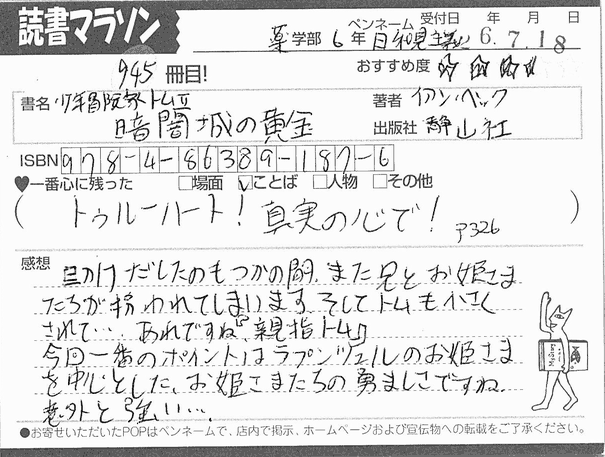 読書マラソン
ペンネーム 受付日 年 月 日
薬学部 6年 日和見主義に 6.7.18
945冊目! おすすめ度
書名 少年冒険家トムⅡ 著者 イアン・ベック
暗闇城の黄金 出版社 静山社
ISBN 978-4-86389-187-6
♥一番心に残った □場面 ☑ことば □人物 □その他
(トゥルーハート!真実の心で! P326)
感想
だしたのもつかの間、また兄とお姫さま
たちが拐われてしまいます。そしてトムも小さく
されて… あれですね『親指トム』
今回一番のポイントはラプンツェルのお姫さま
を中心とした、お姫さまたちの勇ましさですね。
意外と強い…。
●お寄せいただいたPOPはペンネームで、店内で掲示、ホームページおよび宣伝物への転載をご了承ください。